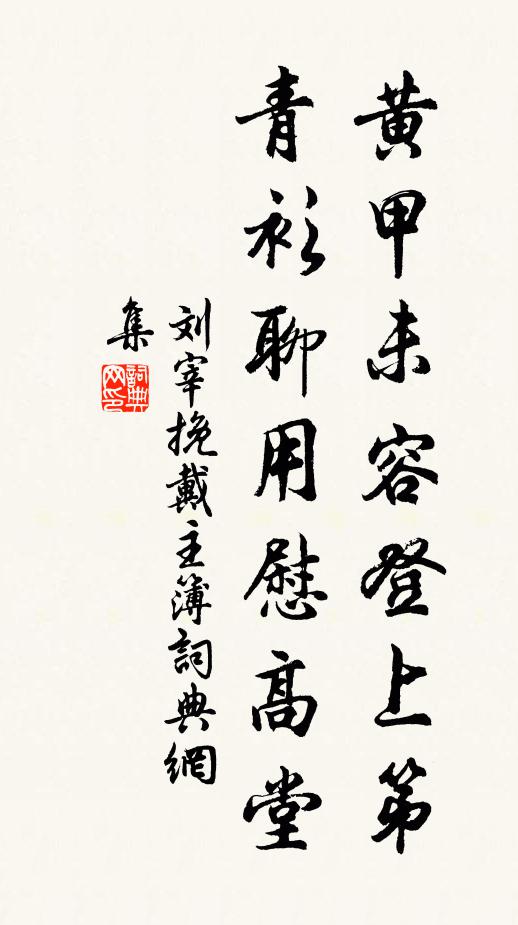 黄甲未容登上第
青衫聊用慰高堂
刘宰挽戴主簿詞典網
集
詞典网印